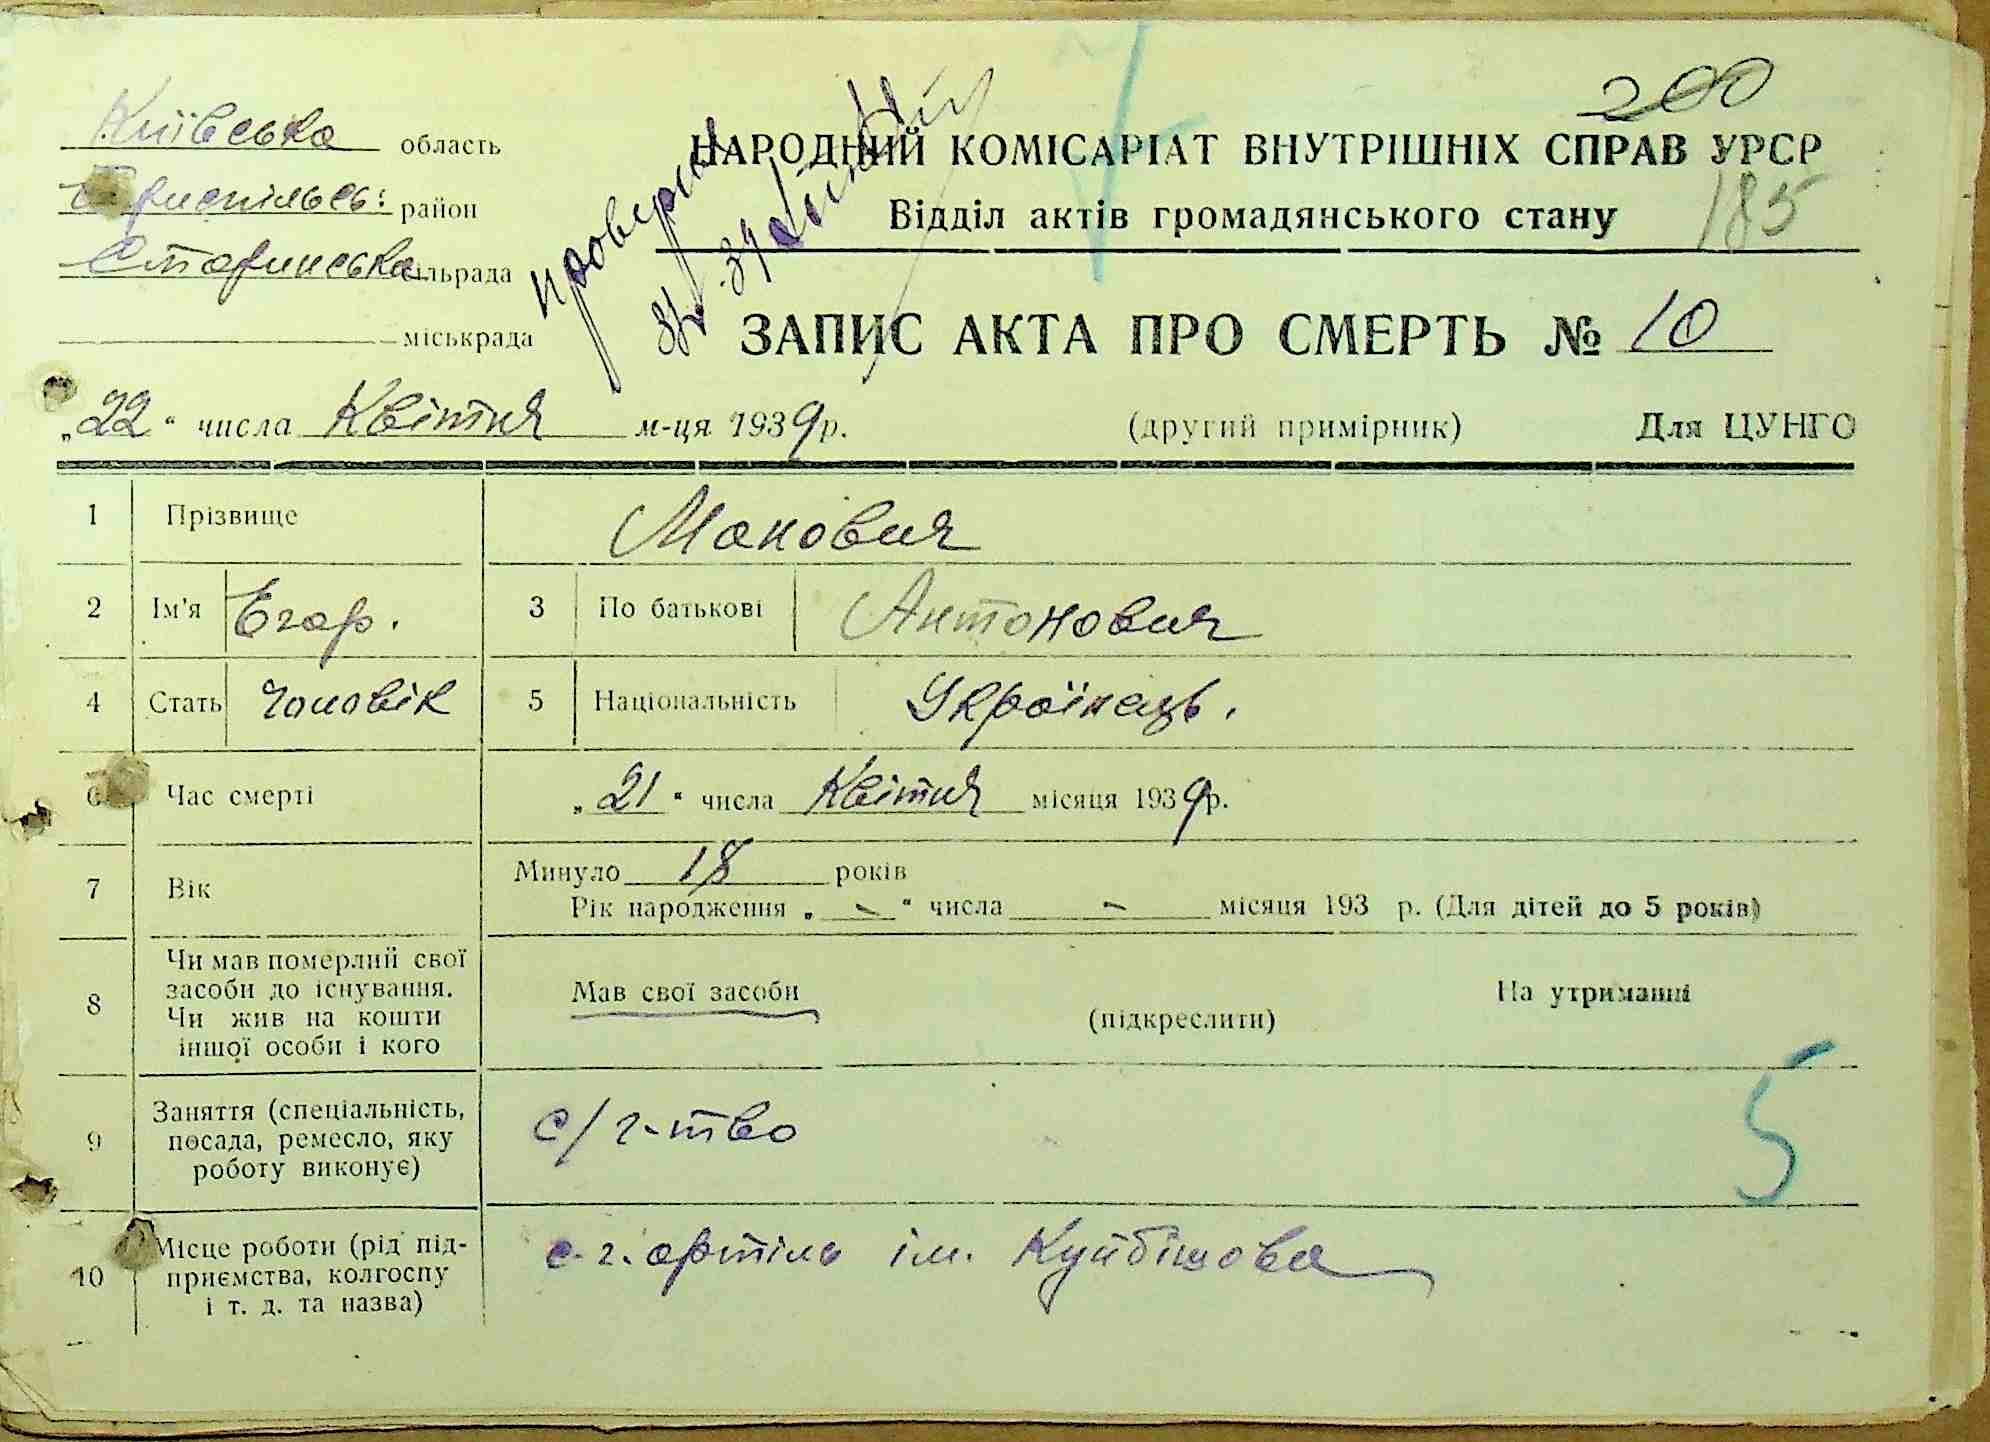 200
Київська область
НАРОДНИЙ КОМІСАРІАТ ВНУТРІШНІХ СПРАВ УРСР
Бориспільсь: район
Відділ актів громадянського стану
185
Старинська сільрада
міськрада
проверено
ЗАПИС АКТА ПРО СМЕРТЬ № 10
„22“ числа Квітня м-ця 1939р. (другий примірник) Для ЦУНГО
1 Прізвище Маковия
2 Ім'я Егор. 3 По батькові Антонович
4 Стать Чоловік 5 Національність Українець.
6 Час смерті „21“ числа Квітня місяця 1939р.
7 Вік Минуло 18 років
Рік народження „ - “ числа - місяця 193 р. (Для дітей до 5 років)
8 Чи мав померлий свої засоби до існування. Чи жив на кошти іншої особи і кого
Мав свої засоби (підкреслити) На утриманні
9 Заняття (спеціальність, посада, ремесло, яку роботу виконує)
с/г-тво
5
10 Місце роботи (рід підприємства, колгоспу і т. д. та назва)
с-г. артіль ім. Куйбішова